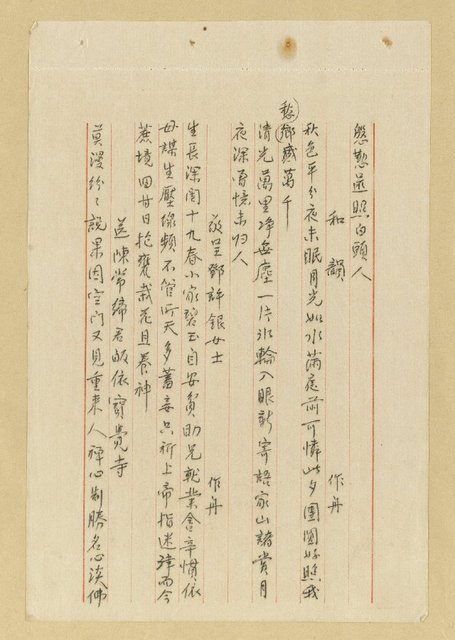 慇懃還照白頭人
和韻 作舟
秋色平分夜未眠月光如水滿庭前可憐此夕團圓好照我
愁鄉感萬千
清光萬里净無塵一片冰輪入眼新寄語家山諸賞月
夜深有憶未归人
敬呈鄧許銀女士 作舟
生長深閨十九春小家碧玉自安貧助兄就業含辛慣依
母謀生壓線頻不管所天多蓄妾只祈上帝指迷津而今
蔗境回甘日抱甕栽花且養神
送陳常締君皈依寶覺寺
莫漫紛々說果因空门又見重來人禪心制勝名心淡佛